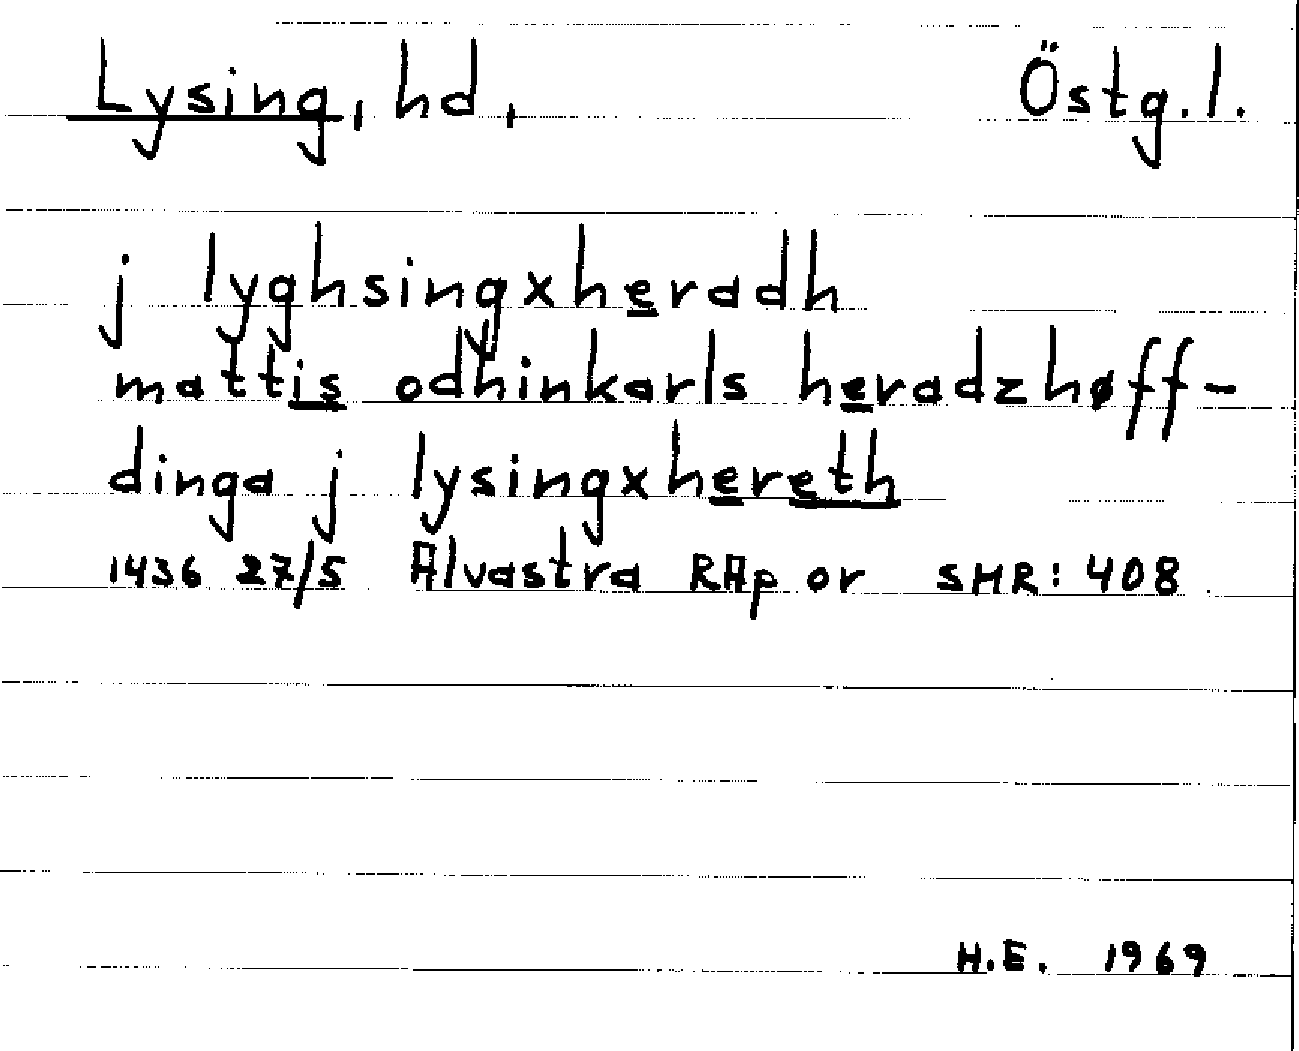 Lysing, hd, Östg. l.
j lyghsingxheradh
mattis odhinkarls heradzhøff-
dinga j lysingxhereth
1436 27/5 Alvastra RAp or SMR: 408
H.E. 1969